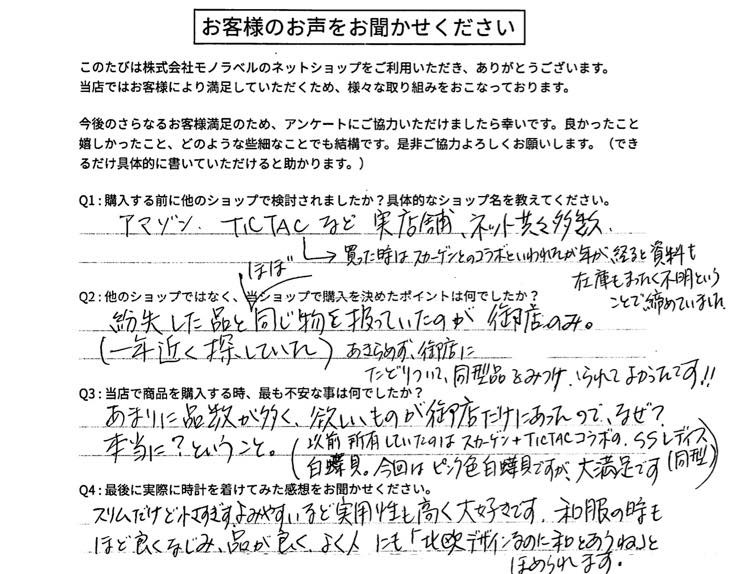 お客様のお声をお聞かせください
このたびは株式会社モノラベルのネットショップをご利用いただき、ありがとうございます。
当店ではお客様により満足していただくため、様々な取り組みをおこなっております。
今後のさらなるお客様満足のため、アンケートにご協力いただけましたら幸いです。良かったこと
嬉しかったこと、どのような些細なことでも結構です。是非ご協力よろしくお願いします。（でき
るだけ具体的に書いていただけると助かります。）
Q1：購入する前に他のショップで検討されましたか？具体的なショップ名を教えてください。
アマゾン．TICTACなど実店舗、ネット共々多数．
→買った時はスカーゲンとのコラボといわれたが年が経ると資料も
在庫もまったく不明という
ことで締めていました
Q2：他のショップではなく、当ショップで購入を決めたポイントは何でしたか？
ほぼ
紛失した品と同じ物を扱っていたのが御店のみ。
（一年近く探していた）あきらめず、御店に
たどりついて、同型品をみつけられてよかったです!!
Q3：当店で商品を購入する時、最も不安な事は何でしたか？
あまりに品数が多く、欲しいものが御店だけにあったので、なぜ？
本当に？ということ。（以前所有していたのはスカーゲン+TICTACコラボの、SSレディス
白蝶貝。今回はピンク色白蝶貝ですが、大満足です（同型）
Q4：最後に実際に時計を着けてみた感想をお聞かせください。
スリムだけど小さすぎず、よみやすいなど実用性も高く大好きです．和服の時も
ほど良くなじみ、品が良く、よく人にも「北欧デザインなのに和とあうね」と
ほめられます。